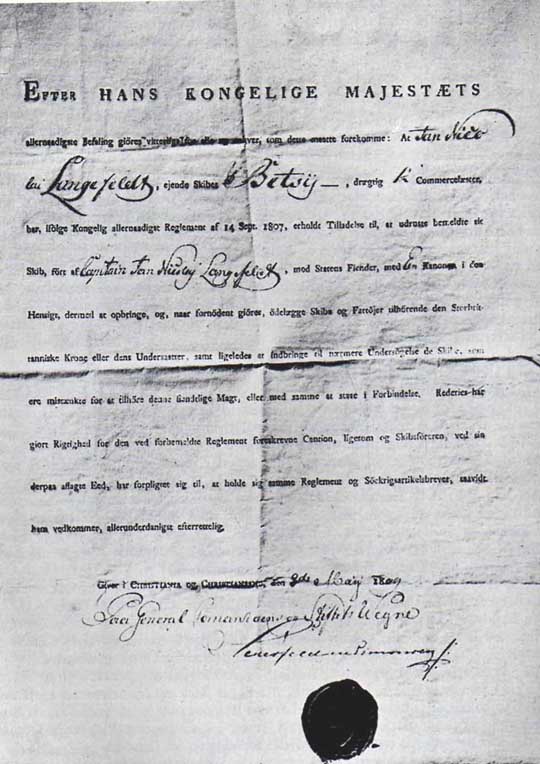 EFTER HANS KONGELIGE MAJESTÆTS
allernaadigste Befaling giöres vitterligt for alle og enhver, som dette maatte forekomme: At Jan Nico
lai Langefeldt, ejende Skibet Betsÿ, drægtig Commercelæster,
har, ifölge Kongelig allernaadigst Reglement af 14 Sept. 1807, erholdt Tilladelse til, at udruste bemeldte sit
Skib, fört af Captain Jan Langefeldt, mod Statens Fiender, med Een Kanoner i den
Hensigt, dermed at opbringe, og, naar fornödent giöres, ödelægge Skibe og Fartöjer tilhörende den Storbrit-
tanniske Krone eller dens Undersaatter, samt ligeledes at indbringe til nærmere Undersögelse de Skibe, som
ere mistænkte for at tilhöre denne fiendelige Magt, eller med samme at staae i Forbindelse. Rederiet har
giort Rigtighed for den ved forbemeldte Reglement foreskrevne Caution, ligesom og Skibsföreren, ved sin
derpaa aflagte Eed, har forpligtet sig til, at holde sig samme Reglement og Söekrigsartikelsbrevet, saavidt
ham vedkommer, allerunderdanigst efterrettelig.
Givet i CHRISTIANIA OG CHRISTIANSAND, den 9de Maÿ 1809
General